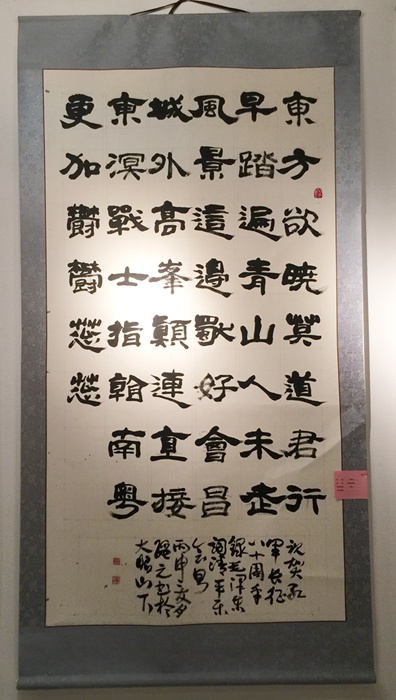 東方欲曉莫道君行
早踏遍青山人未老
風景這邊獨好會昌
城外高峯顛連直接
東溟戰士指看南粵
更加鬱鬱葱葱
祝賀紅
軍長征
八十周年
錄毛澤東
詞清平樂
會昌
丙申
元書於
山下